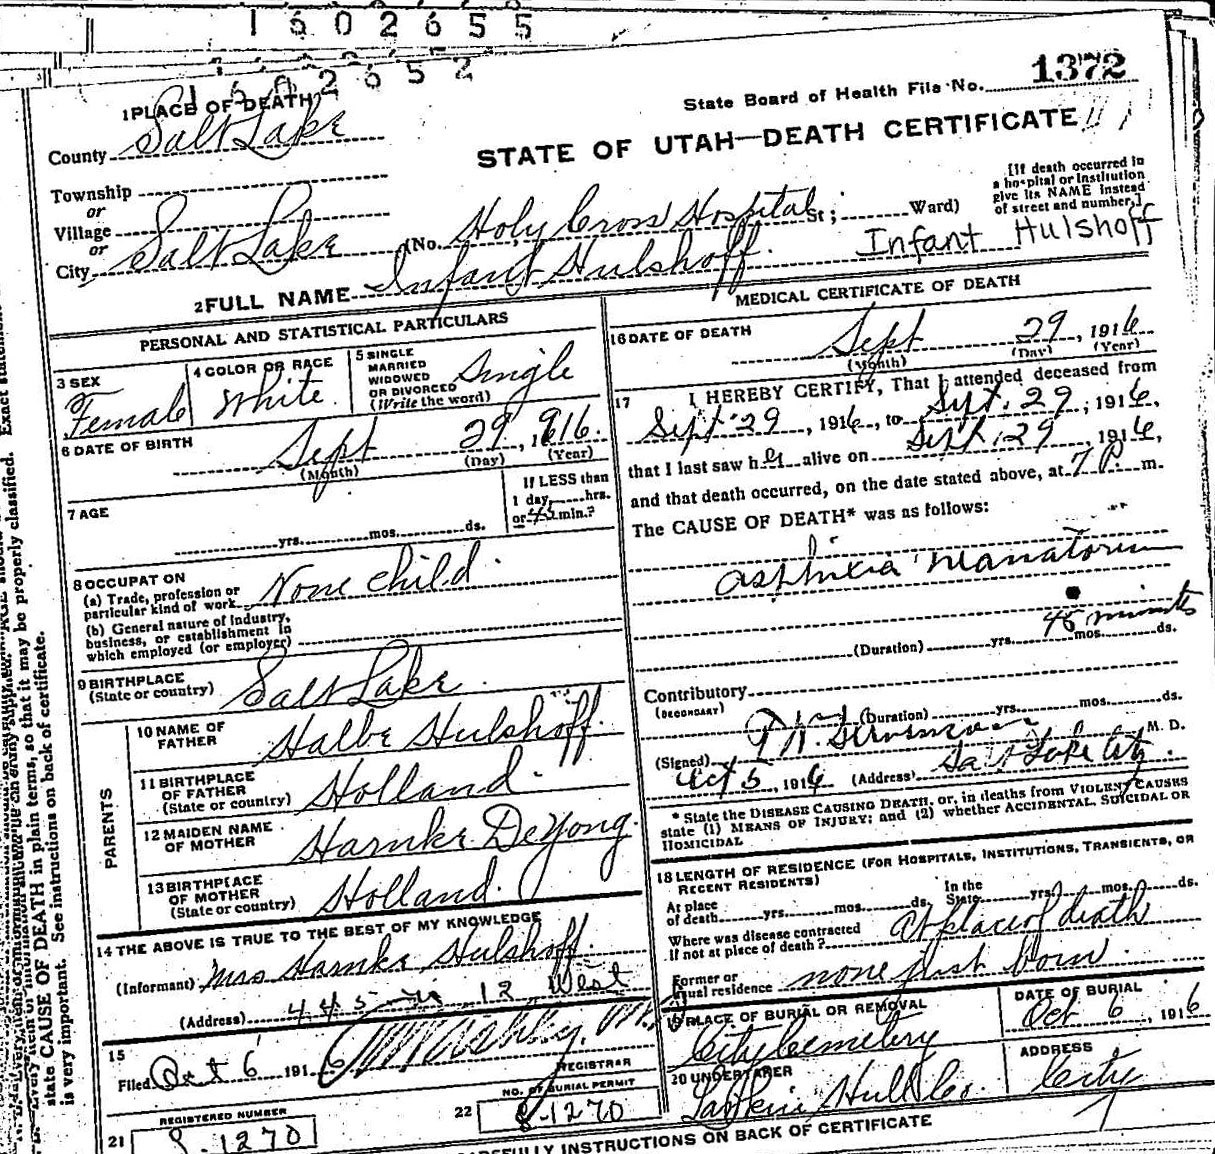 1602655
1602652
1 PLACE OF DEATH
State Board of Health File No. 1372
County Salt Lake
STATE OF UTAH—DEATH CERTIFICATE
Township
or
Village
or
City Salt Lake (No. Holy Cross Hospital St; Ward)
[If death occurred in
a hospital or institution
give its NAME instead
of street and number.]
2 FULL NAME Infant Hulshoff
Infant Hulshoff
PERSONAL AND STATISTICAL PARTICULARS
3 SEX
Female
4 COLOR OR RACE
White
5 SINGLE
MARRIED
WIDOWED
OR DIVORCED
(Write the word)
Single
6 DATE OF BIRTH
Sept 29, 1916.
(Month) (Day) (Year)
7 AGE
yrs. mos. ds.
If LESS than
1 day, hrs.
or 45 min.?
8 OCCUPATION
(a) Trade, profession or
particular kind of work None child.
(b) General nature of industry,
business, or establishment in
which employed (or employer)
9 BIRTHPLACE
(State or country) Salt Lake.
PARENTS
10 NAME OF
FATHER Halbe Hulshoff.
11 BIRTHPLACE
OF FATHER
(State or country) Holland.
12 MAIDEN NAME
OF MOTHER Harnke DeYong.
13 BIRTHPLACE
OF MOTHER
(State or country) Holland.
14 THE ABOVE IS TRUE TO THE BEST OF MY KNOWLEDGE
(Informant) Mrs Harnke Hulshoff.
(Address) 445 12 West
15
Filed Oct 6 1916
REGISTRAR
21 REGISTERED NUMBER
8.1270
22 NO. OF BURIAL PERMIT
8.1270
MEDICAL CERTIFICATE OF DEATH
16 DATE OF DEATH
Sept 29, 1916
(Month) (Day) (Year)
17 I HEREBY CERTIFY, That I attended deceased from
Sept 29, 1916, to Sept. 29, 1916,
that I last saw her alive on Sept. 29, 1916,
and that death occurred, on the date stated above, at 7 P. m.
The CAUSE OF DEATH* was as follows:
asphixia neanatorum
45 minutes
(Duration) yrs. mos. ds.
Contributory
(SECONDARY)
(Duration) yrs. mos. ds.
(Signed) M. D.
Oct 5, 1916 (Address) Salt Lake City.
* State the DISEASE CAUSING DEATH, or, in deaths from VIOLENT CAUSES
state (1) MEANS OF INJURY; and (2) whether ACCIDENTAL, SUICIDAL OR
HOMICIDAL
18 LENGTH OF RESIDENCE (FOR HOSPITALS, INSTITUTIONS, TRANSIENTS, OR
RECENT RESIDENTS)
At place
of death yrs. mos. ds.
In the
State yrs. mos. ds.
Where was disease contracted
if not at place of death? At place of death
Former or
usual residence none just born.
19 PLACE OF BURIAL OR REMOVAL
City Cemetery
DATE OF BURIAL
Oct 6, 1916
20 UNDERTAKER
Larkin Hull Co.
ADDRESS
City
CAREFULLY INSTRUCTIONS ON BACK OF CERTIFICATE
state CAUSE OF DEATH in plain terms, so that it may be properly classified. Exact
is very important. See instructions on back of certificate.